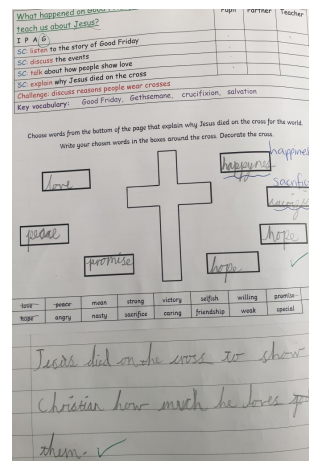 What happened on Good
teach us about Jesus?
Pupil Partner Teacher
I P A G
SC: listen to the story of Good Friday
SC: discuss the events
SC: talk about how people show love
SC: explain why Jesus died on the cross
Challenge: discuss reasons people wear crosses
Key vocabulary: Good Friday, Gethsemane, crucifixion, salvation
Choose words from the bottom of the page that explain why Jesus died on the cross for the world.
Write your chosen words in the boxes around the cross. Decorate the cross.
happines
happynes
love
sacrific
peace
hope
promise
hope
love peace mean strong victory selfish willing promise
hope angry nasty sacrifice caring friendship weak special
Jesas died on the cross to show
Christian how much he loves
them.